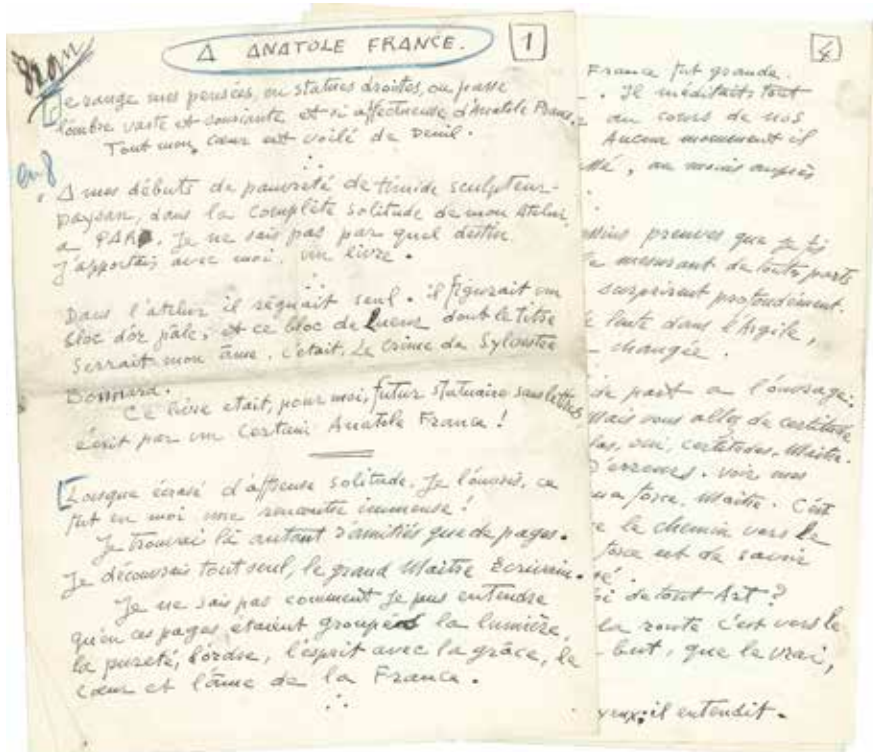 A ANATOLE FRANCE.
1
Je range mes pensées, en statues droites, où passe
l'ombre vaste et souriante et si affectueuse d'Anatole France,
Tout mon cœur est voilé de Deuil.
en 8
A mes débuts de pauvreté de timide sculpteur-
paysan, dans la complète solitude de mon Atelier
a PARIS. Je ne sais pas par quel destin
J'apportais avec moi. un livre.
Dans l'atelier il régnait seul. il figurait un
bloc d'or pâle, et ce bloc de Lueur dont le titre
Serrait mon âme. C'était. Le Crime de Sylvestre
Bonnard.
Ce livre etait, pour moi, futur statuaire sans lettres,
écrit par un Certain Anatole France !
Lorsque écrasé d'affreuse solitude. Je l'ouvris, ce
fut en moi une rencontre immense !
Je trouvai là autant d'amitiés que de pages.
Je découvrais tout seul, le grand Maître Ecrivain.
Je ne sais pas comment Je pus entendre
qu'en ces pages etaient groupés la lumière,
la pureté, l'ordre, l'esprit avec la grâce, le
cœur et l'âme de la France.
4
France fut grande.
. Il méditait tout
au cours de nos
Aucun mouvement il
, au moins auprès
preuves que je fis
mesurant de toutes parts
surprirent profondément.
lente dans l'Argile,
changée.
part a l'ouvrage.
Mais vous allez de certitude
oui, certitudes. Maître.
D'erreurs. voir mes
ma force. Maître. C'est
le chemin vers le
force est de savoir
de tout Art ?
la route c'est vers le
but, que le vrai,
yeux, il entendit.